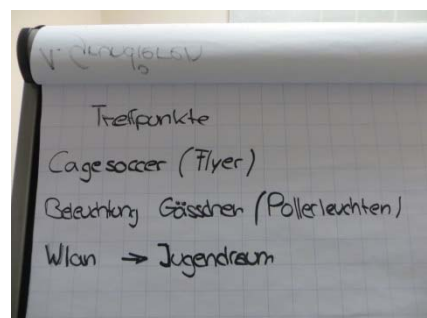 Treffpunkte
Cagesoccer (Flyer)
Beleuchtung Gässchen (Pollerleuchten)
Wlan → Jugendraum